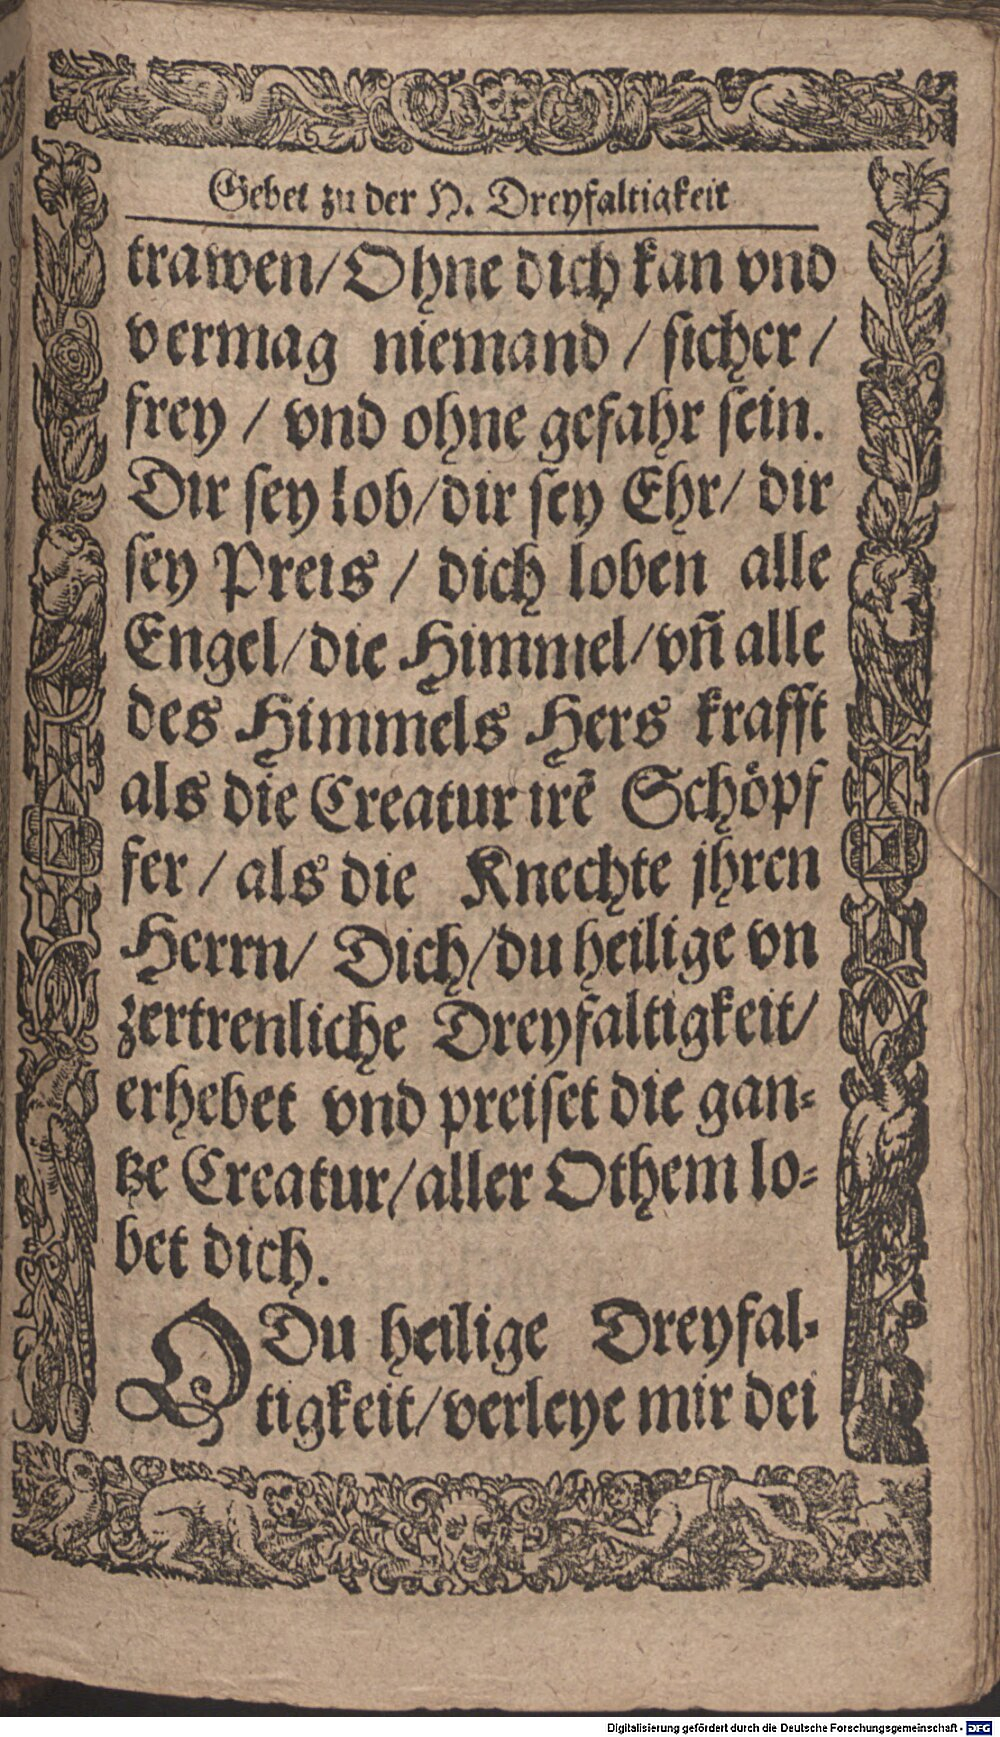 Gebet zu der H. Dreyfaltigkeit
trawen/ Ohne dich kan vnd
vermag niemand / sicher /
frey / vnd ohne gefahr sein.
Dir sey lob/ dir sey Ehr/ dir
sey Preis / dich loben alle
Engel/ die Himmel/ vñ alle
des Himmels Hers krafft
als die Creatur irẽ Schöpf
fer / als die Knechte jhren
Herrn/ Dich/ du heilige vn
zertrenliche Dreyfaltigkeit/
erhebet vnd preiset die gan-
tze Creatur/ aller Othem lo-
bet dich.
O Du heilige Dreyfal-
tigkeit/ verleye mir dei
Digitalisierung gefördert durch die Deutsche Forschungsgemeinschaft - DFG